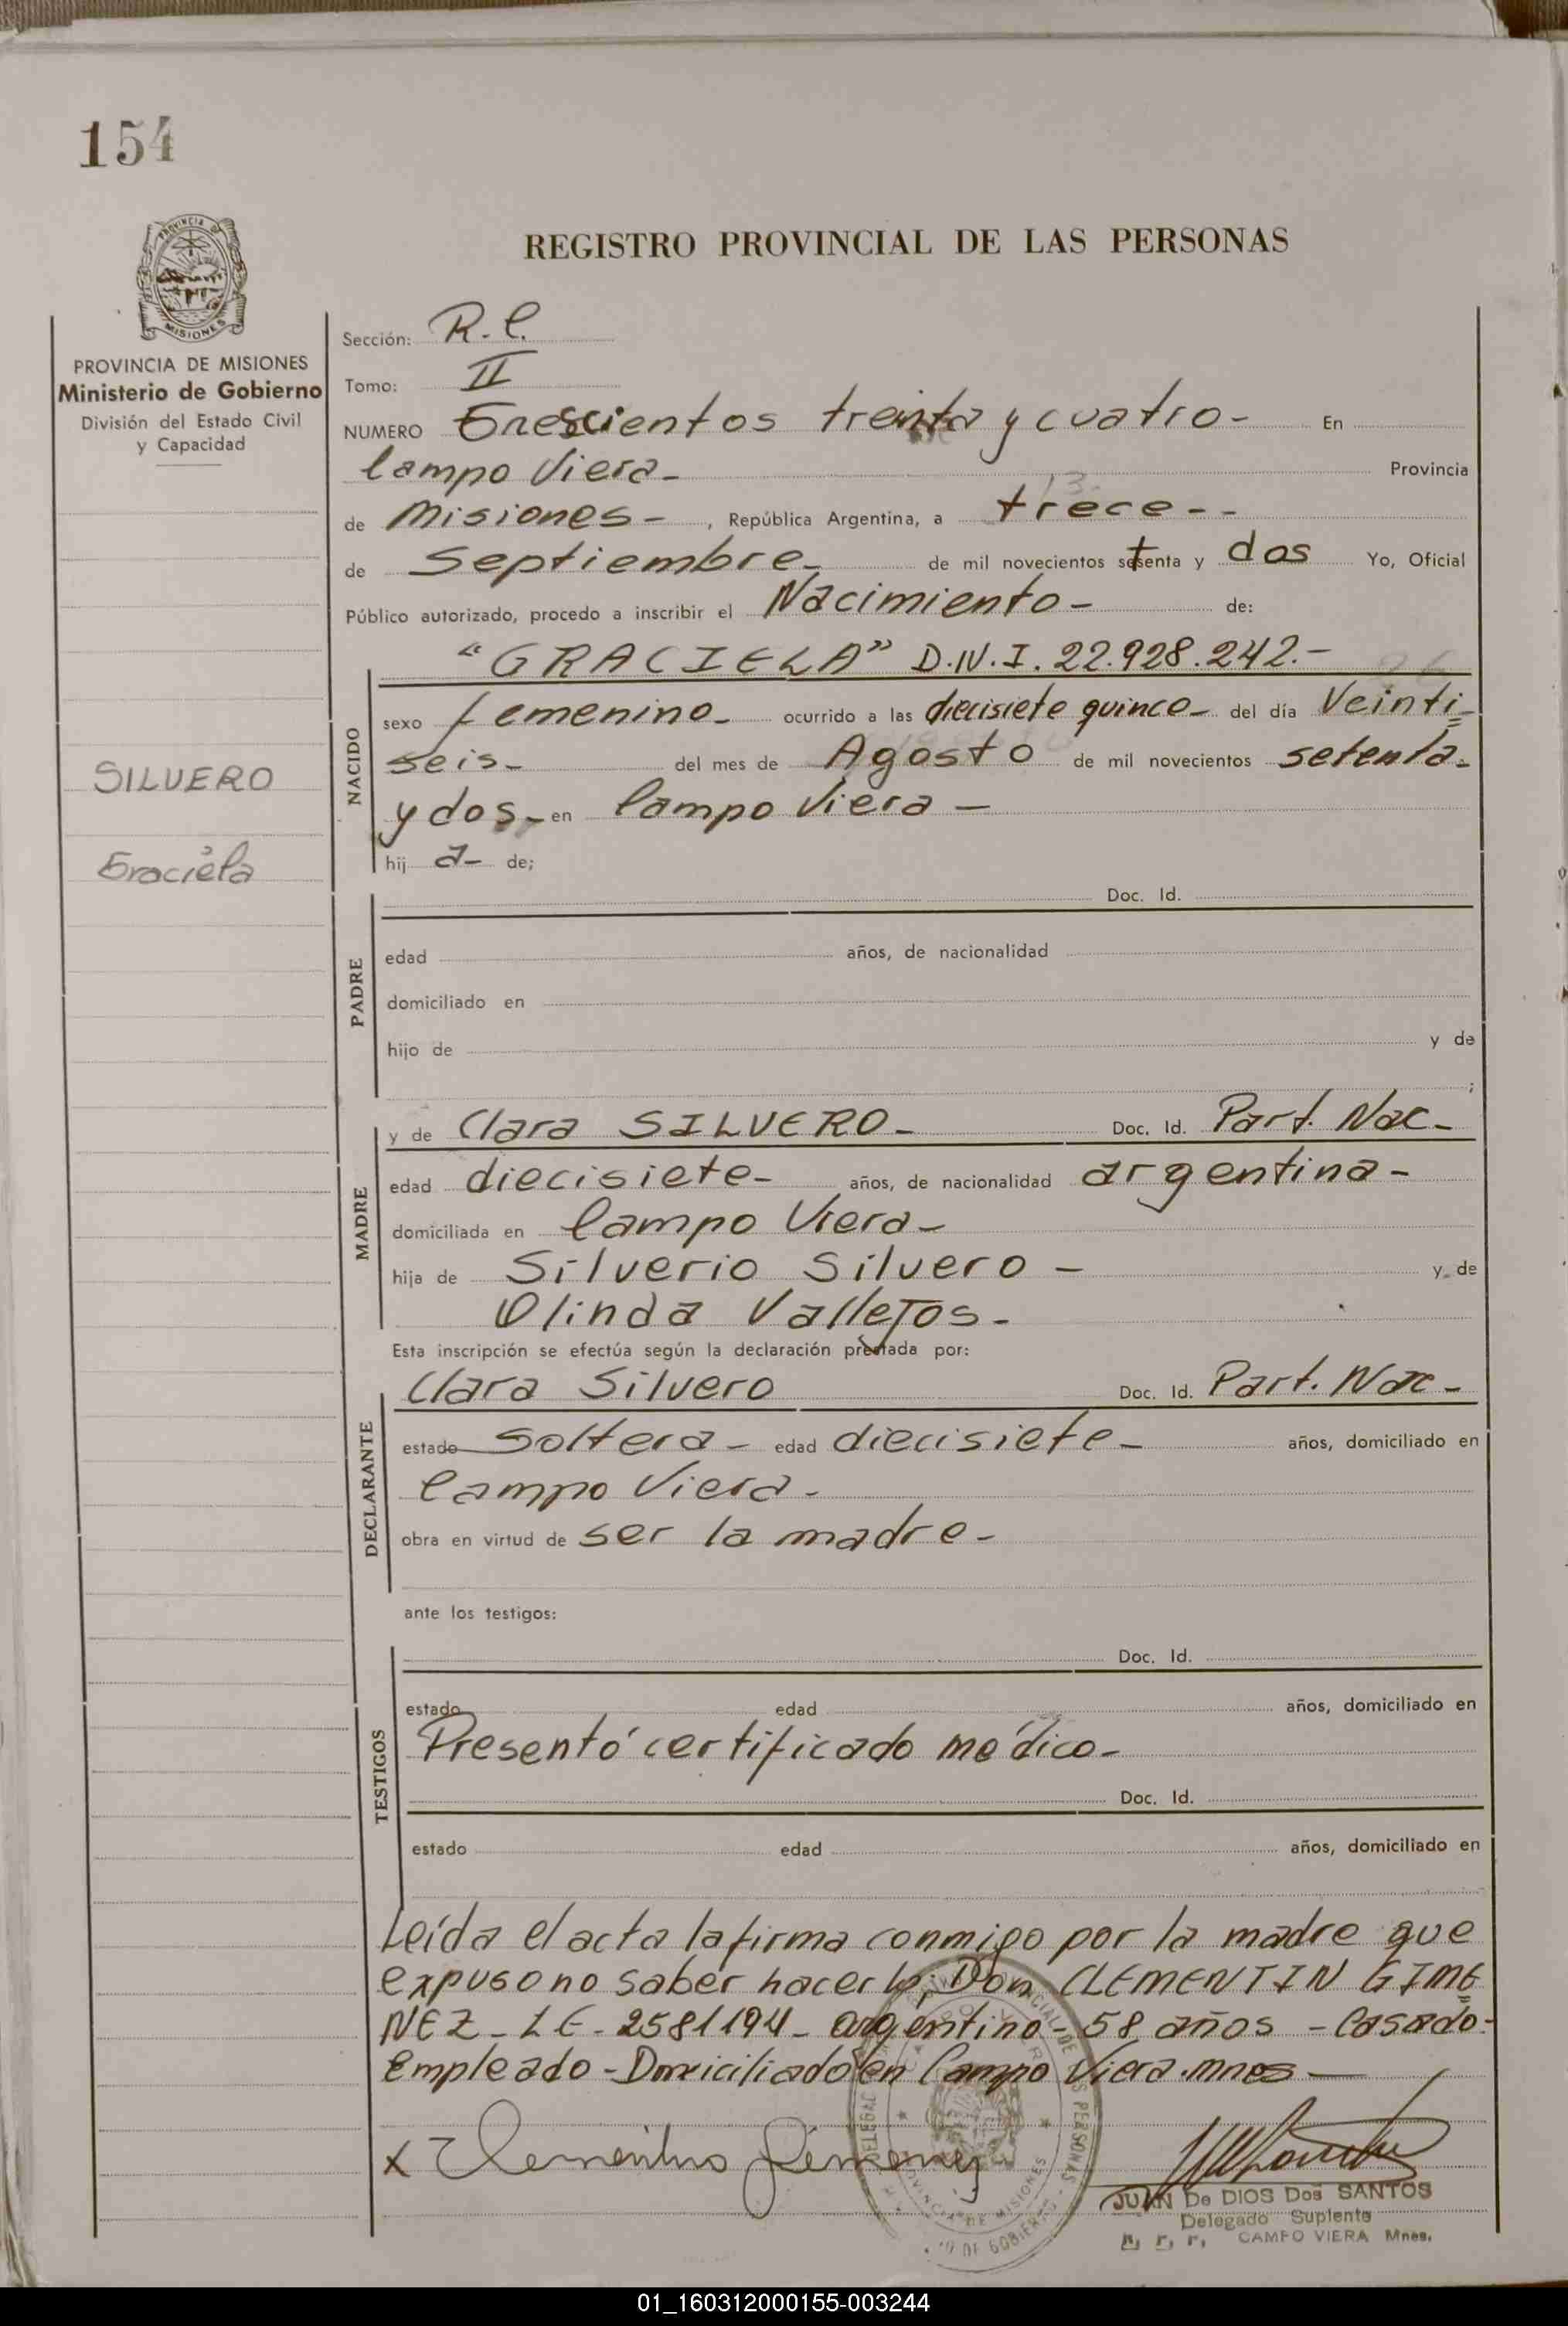 154
PROVINCIA DE
MISIONES
PROVINCIA DE MISIONES
Ministerio de Gobierno
División del Estado Civil
y Capacidad
SILVERO
Graciela
REGISTRO PROVINCIAL DE LAS PERSONAS
Sección: R.C.
Tomo: II
NUMERO Trescientos treinta y cuatro- En
Campo Viera- Provincia
de Misiones- , República Argentina, a trece--
de Septiembre- de mil novecientos setenta y dos Yo, Oficial
Público autorizado, procedo a inscribir el Nacimiento- de:
"GRACIELA" D.N.I. 22.928.242.-
NACIDO
sexo femenino- ocurrido a las diecisiete quince- del día Veinti=
seis- del mes de Agosto de mil novecientos setenta-
y dos- en Campo Viera-
hij a- de;
PADRE
Doc. Id.
edad años, de nacionalidad
domiciliado en
hijo de y de
;
MADRE
y de Clara SILVERO- Doc. Id. Part. Nac-
edad diecisiete- años, de nacionalidad argentina-
domiciliada en Campo Viera-
hija de Silverio Silvero- y de
Olinda Vallejos-
Esta inscripción se efectúa según la declaración prestada por:
DECLARANTE
Clara Silvero Doc. Id. Part. Nac-
estado Soltera- edad diecisiete- años, domiciliado en
Campo Viera-
obra en virtud de ser la madre-
ante los testigos:
TESTIGOS
Doc. Id.
estado edad años, domiciliado en
Presentó certificado médico-
Doc. Id.
estado edad años, domiciliado en
Leída el acta la firma conmigo por la madre que
expuso no saber hacerlo; Don CLEMENTIN GIME=
NEZ-LE-2581194-argentino-58 años-Casado-
Empleado-Domiciliado en Campo Viera.mnes-
x Clementino Jimenez
PROVINCIA DE MISIONES
JUAN De DIOS Dos SANTOS
Delegado Suplente
CAMPO VIERA Mnes.
01_160312000155-003244